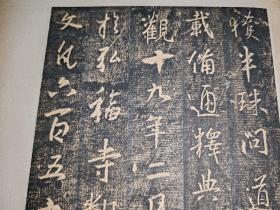 獲半珠問道
載備通釋典
觀十九年二月
於弘福寺翻
文凡六百五十